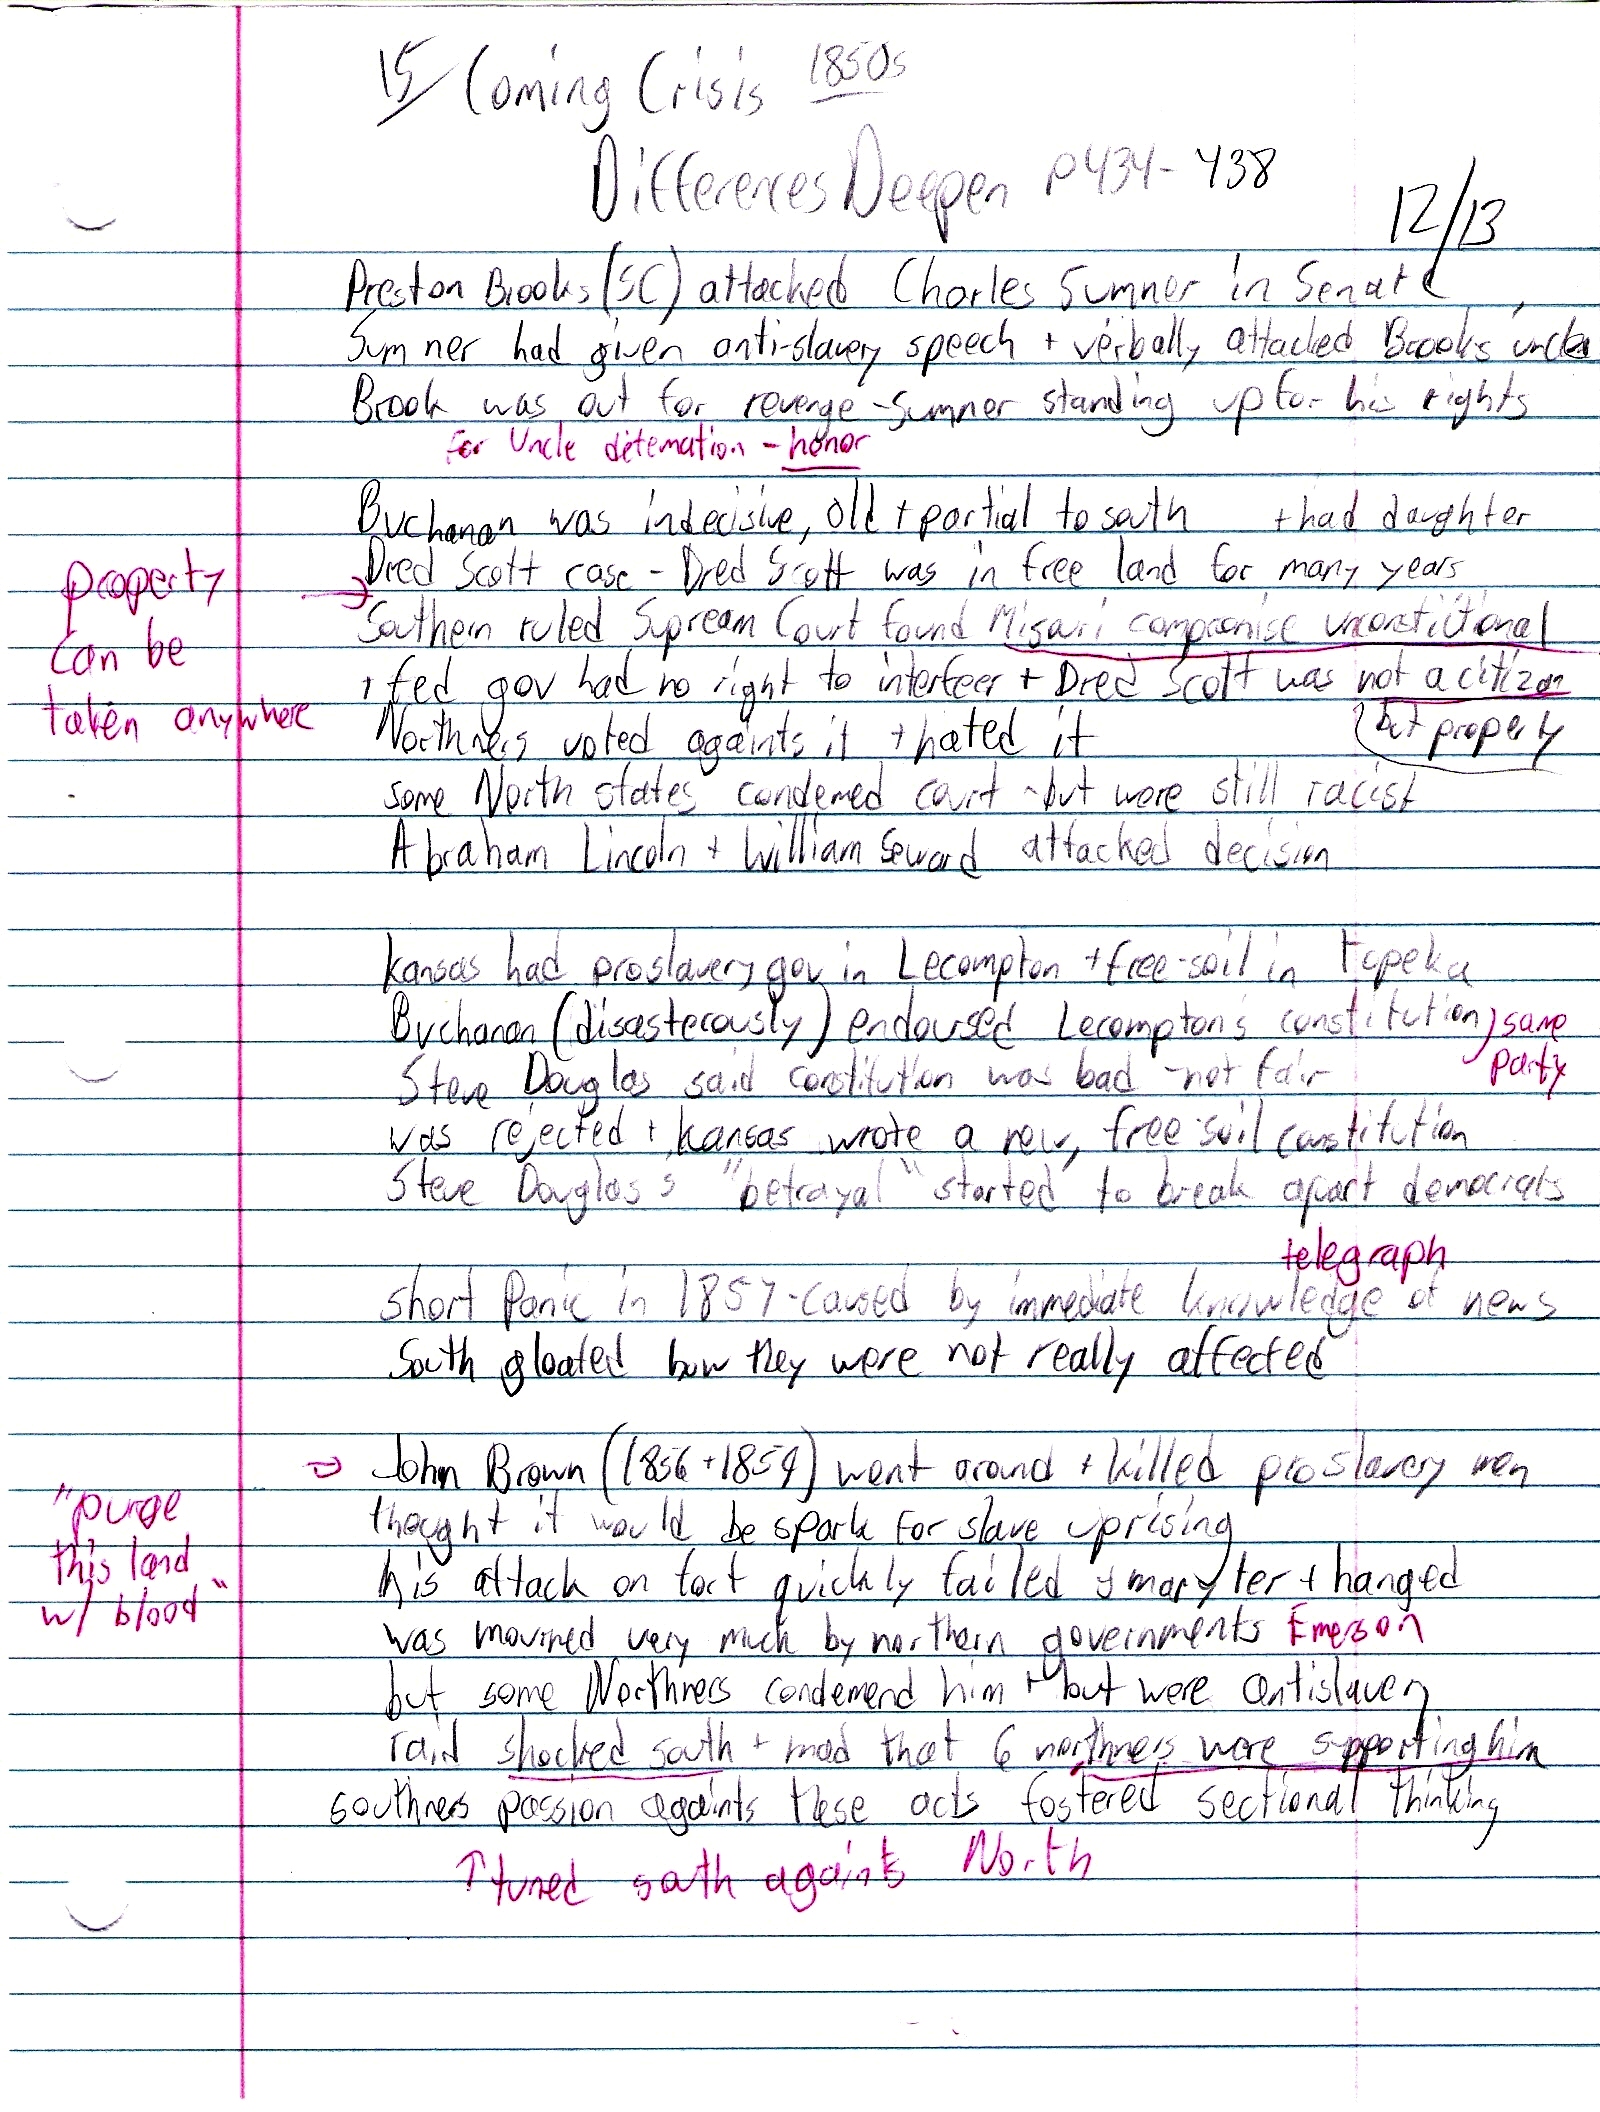 15/ Coming Crisis 1850s
Differences Deepen p434-438
12/13
Preston Brooks (SC) attacked Charles Sumner in Senate,
Sumner had given anti-slavery speech + verbally attacked Brooks uncle
Brook was out for revenge - Sumner standing up for his rights
For Uncle detemation - honor
Buchanan was indecisive, old + partial to south + had daughter
Dred Scott case - Dred Scott was in free land for many years
property
can be
taken anywhere
Southern ruled Supream Court found Misouri compromise unconstictional
+ fed gov had no right to interfeer + Dred Scott was not a citizan
but property
Northners voted againts it + hated it
some North states condemed court - but were still racist
Abraham Lincoln + William Seward attacked decision
Kansas had proslavery gov in Lecompton + free-soil in Topeka
Buchanan (disasterously) endoursed Lecompton's constitution
same
party
Steve Douglas said constitution was bad - not fair
was rejected + Kansas wrote a new, free-soil constitution
Steve Douglas's "betrayal" started to break apart democrats
telegraph
short Panic in 1857 - caused by immediate knowledge of news
South gloated how they were not really affected
John Brown (1856 + 1859) went around + killed proslavery men
"purge
this land
w/ blood"
thought it would be spark for slave uprising
his attack on fort quickly failed martyer + hanged
was mourned very much by northern governments Emerson
but some Northners condemend him + but were antislavery
raid shocked south + mad that 6 northners were supporting him
southners passion againts these acts fostered sectional thinking
↑ tured south againts North